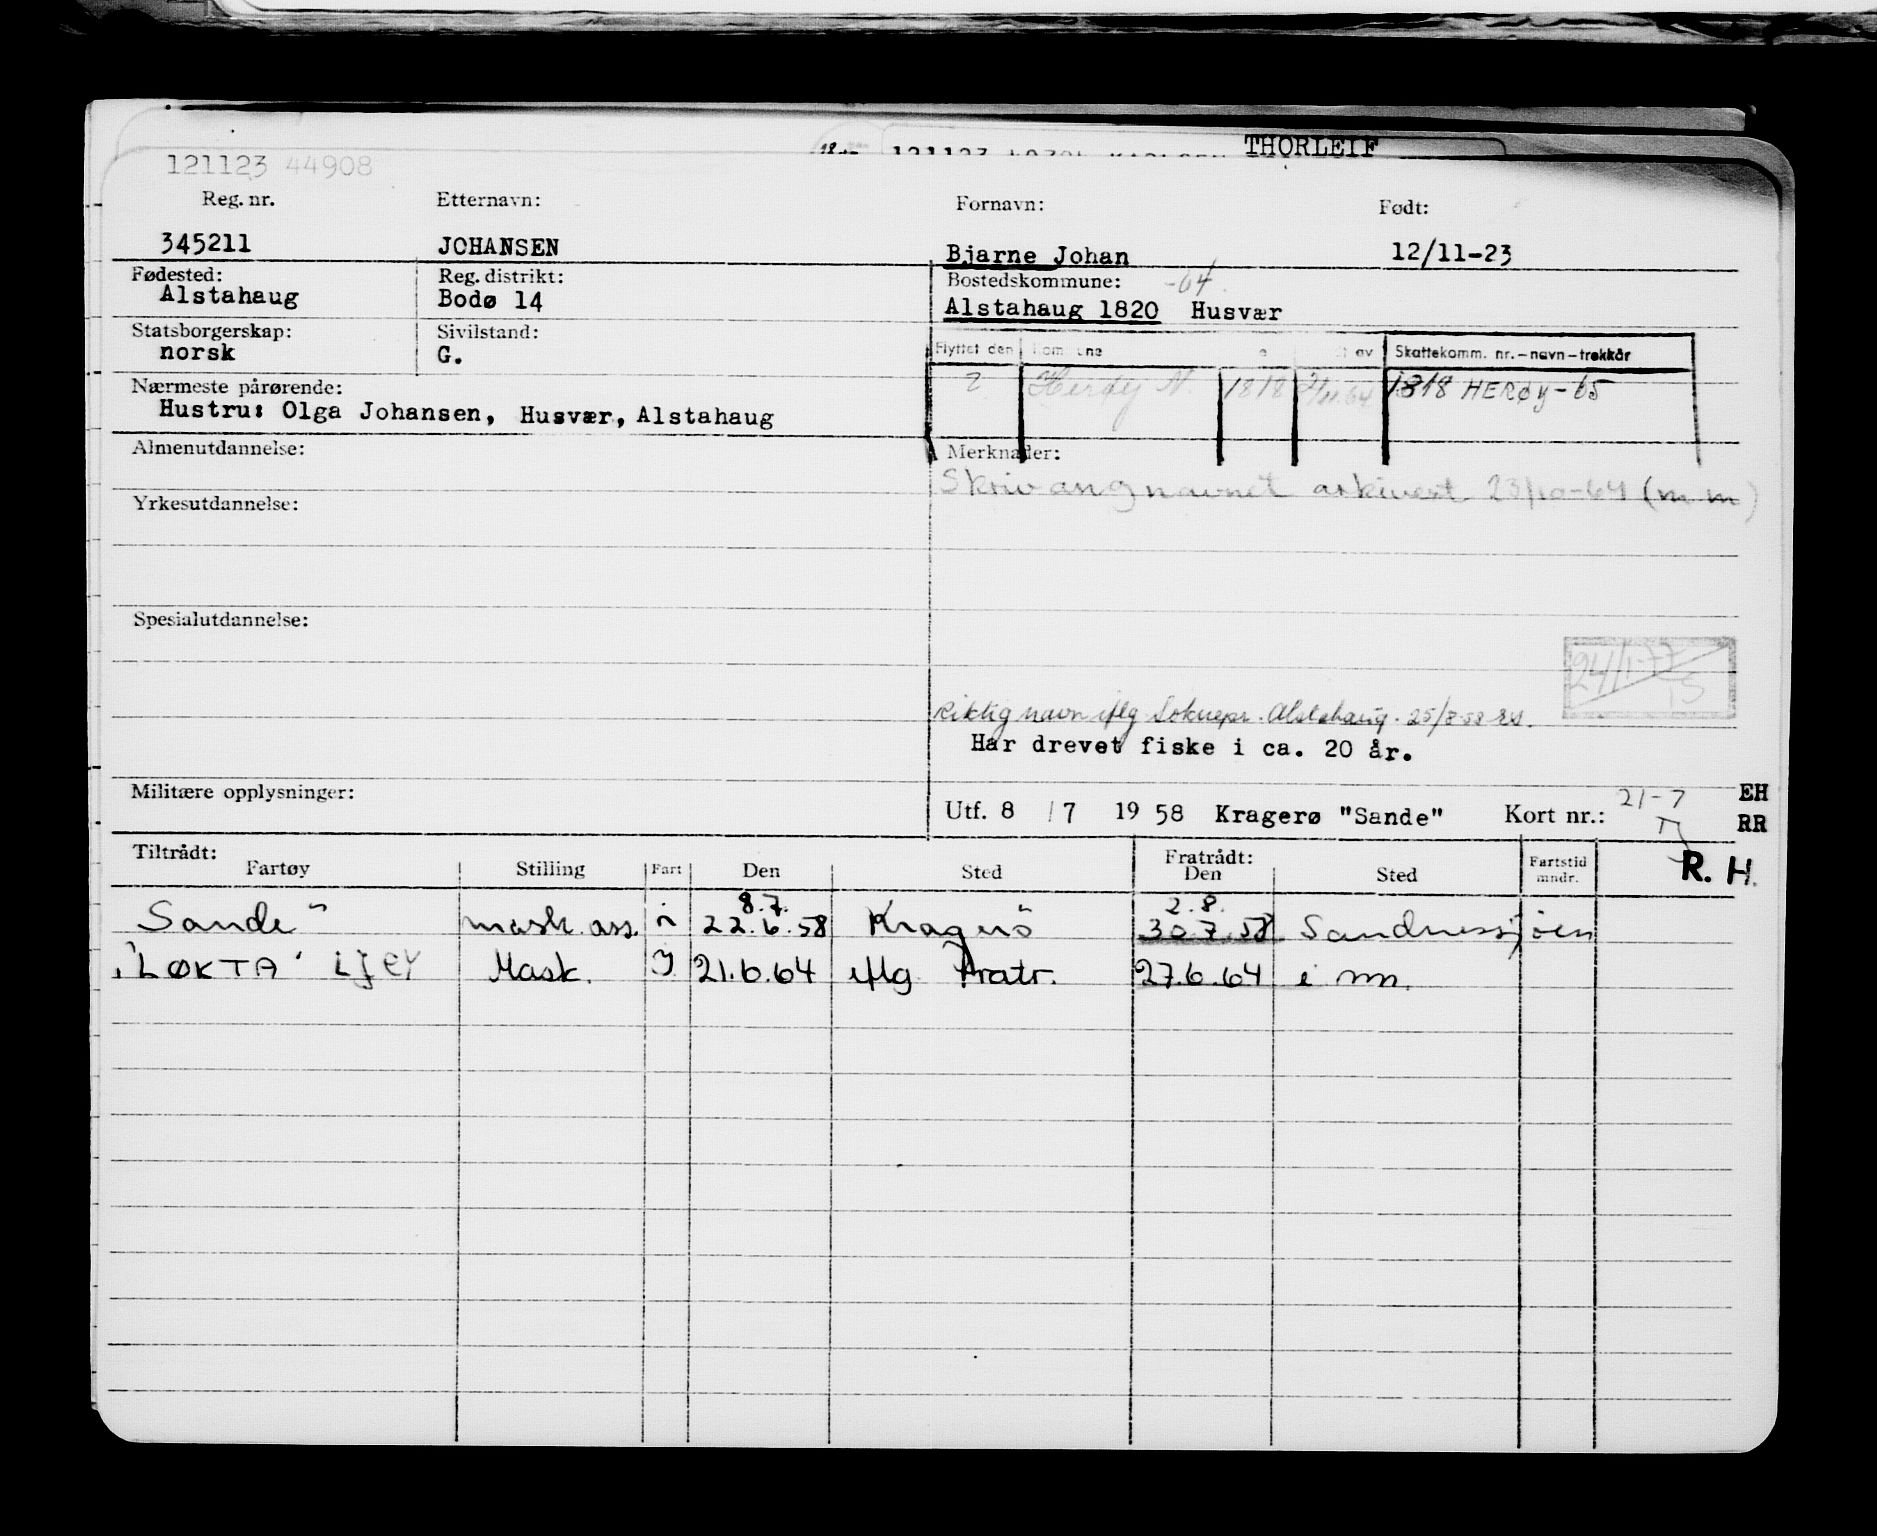 THORLEIF
121123 44908
Reg. nr. Etternavn: Fornavn: Født:
345211 JOHANSEN Bjarne Johan 12/11-23
Fødested: Reg. distrikt: Bostedskommune: -64
Alstahaug Bodø 14 Alstahaug 1820 Husvær
Statsborgerskap: Sivilstand:
norsk G.
Flyttet den av Skattekomm. nr.-navn-trekkår
Herøy N. 1818 1818 HERØY-65
Nærmeste pårørende:
Hustru: Olga Johansen, Husvær, Alstahaug
Almenutdannelse: Merknader:
Skriv ang navnet arkivert 23/10-64 (m m)
Yrkesutdannelse:
Spesialutdannelse:
24/1-77
Riktig navn iflg Soknepr. Alstahaug. 25/8-58
Har drevet fiske i ca. 20 år.
Militære opplysninger: Utf. 8 / 7 1958 Kragerø "Sande" Kort nr.: 21-7 EH
RR
R. H.
Tiltrådt: Fratrådt:
Fartøy Stilling Fart Den Sted Den Sted Fartstid mndr.
8.7. 2.8.
Sande" mask. ass. i 22.6.58 Kragerö 30.7.58 Sandnessjöen
"LØKTA" LJEY Mask. I 21.6.64 iflg fratr. 27.6.64 i nn.